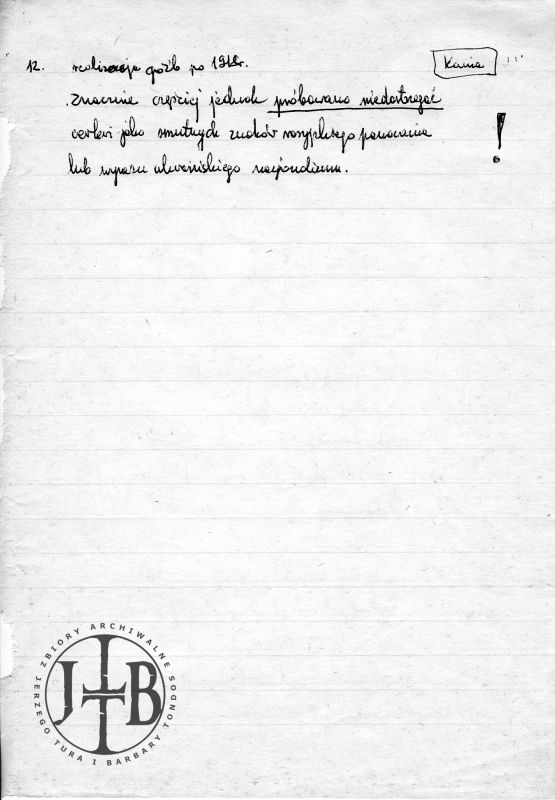 12. realizacja gróźb po 1918r.
Kania
Znacznie częściej jednak próbowano niedostrzegać
cerkwi jako smutnych znaków rosyjskiego panowania
lub wyrazu ukraińskiego nacjonalizmu.
!
ZBIORY ARCHIWALNE
JERZEGO TURA I BARBARY TONDOS
JTB